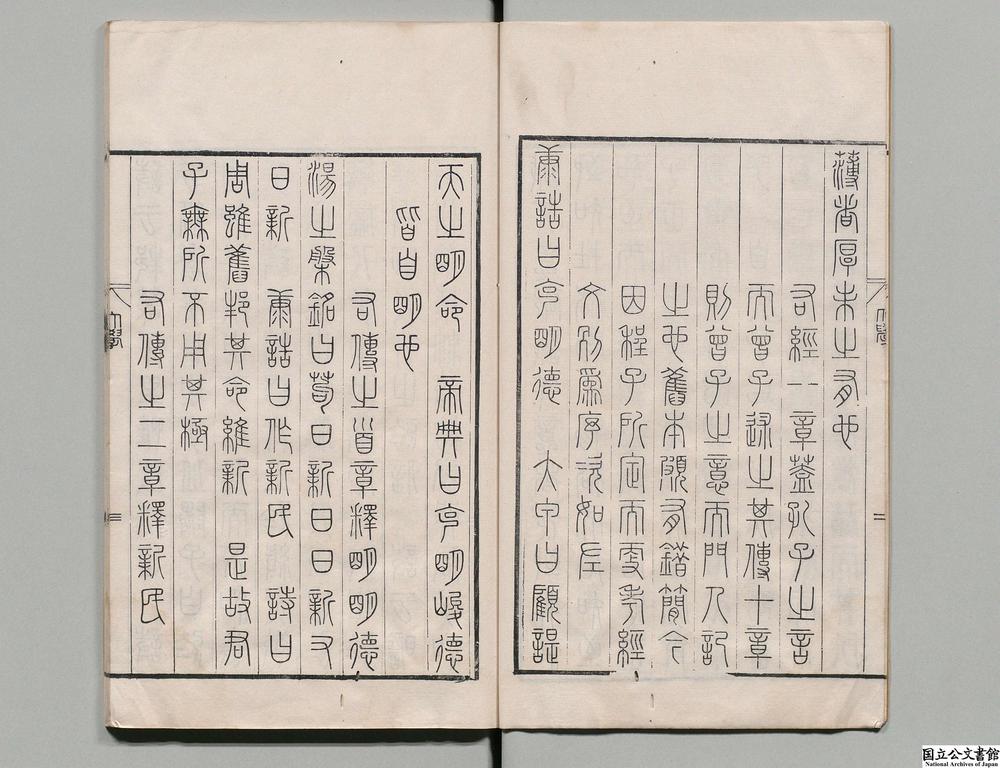 薄者厚未之有也
右經一章蓋孔子之言
而曾子述之其傳十章
則曾子之意而門人記
之也舊本頗有錯簡今
因程子所定而更考經
文別爲序次如左
康誥曰克明德　大甲曰顧諟
大學
天之明命　帝典曰克明峻德
皆自明也
右傳之首章釋明明德
湯之盤銘曰苟日新日日新又
日新　康誥曰作新民　詩曰
周雖舊邦其命維新　是故君
子無所不用其極
右傳之二章釋新民
大學
国立公文書館
National Archives of Japan